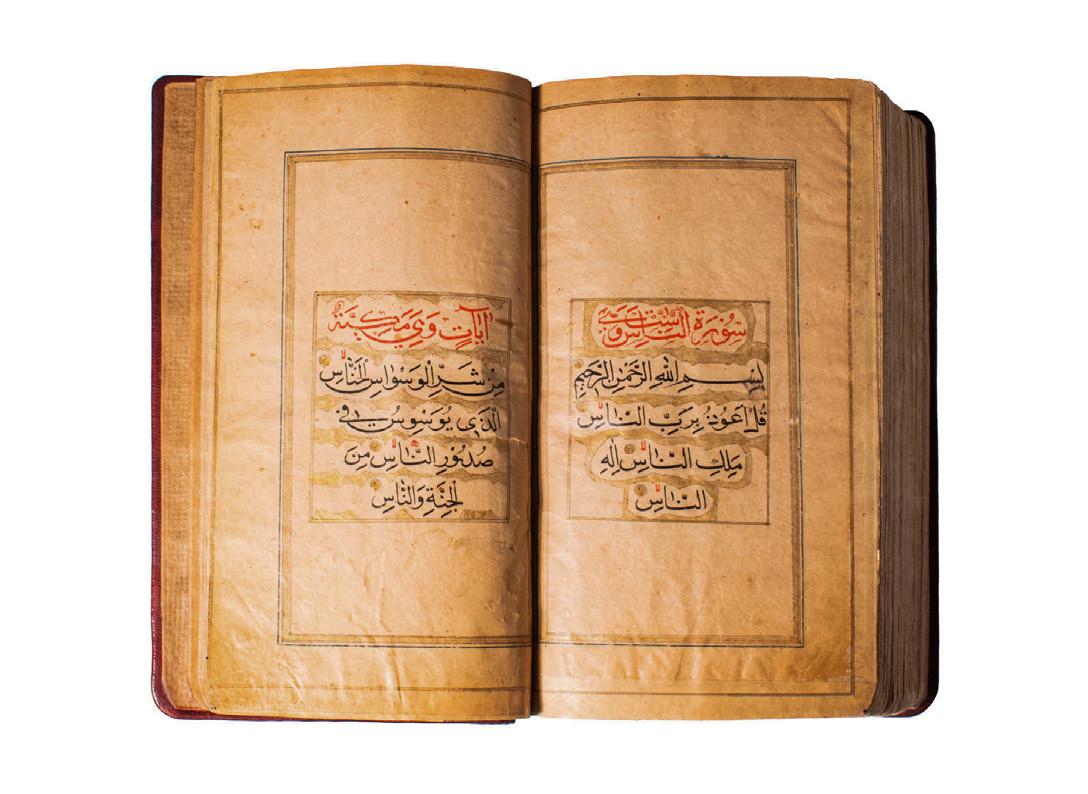 سُورَةُ النَّاسِ وَهِيَ سِتُّ
بِسْمِ اللهِ الرَّحْمٰنِ الرَّحِيمِ
قُلْ أَعُوذُ بِرَبِّ النَّاسِ
مَلِكِ النَّاسِ إِلٰهِ
النَّاسِ
آيَاتٍ وَهِيَ مَكِّيَّةٌ
مِنْ شَرِّ الْوَسْوَاسِ الْخَنَّاسِ
الَّذِي يُوَسْوِسُ فِي
صُدُورِ النَّاسِ مِنَ
الْجِنَّةِ وَالنَّاسِ